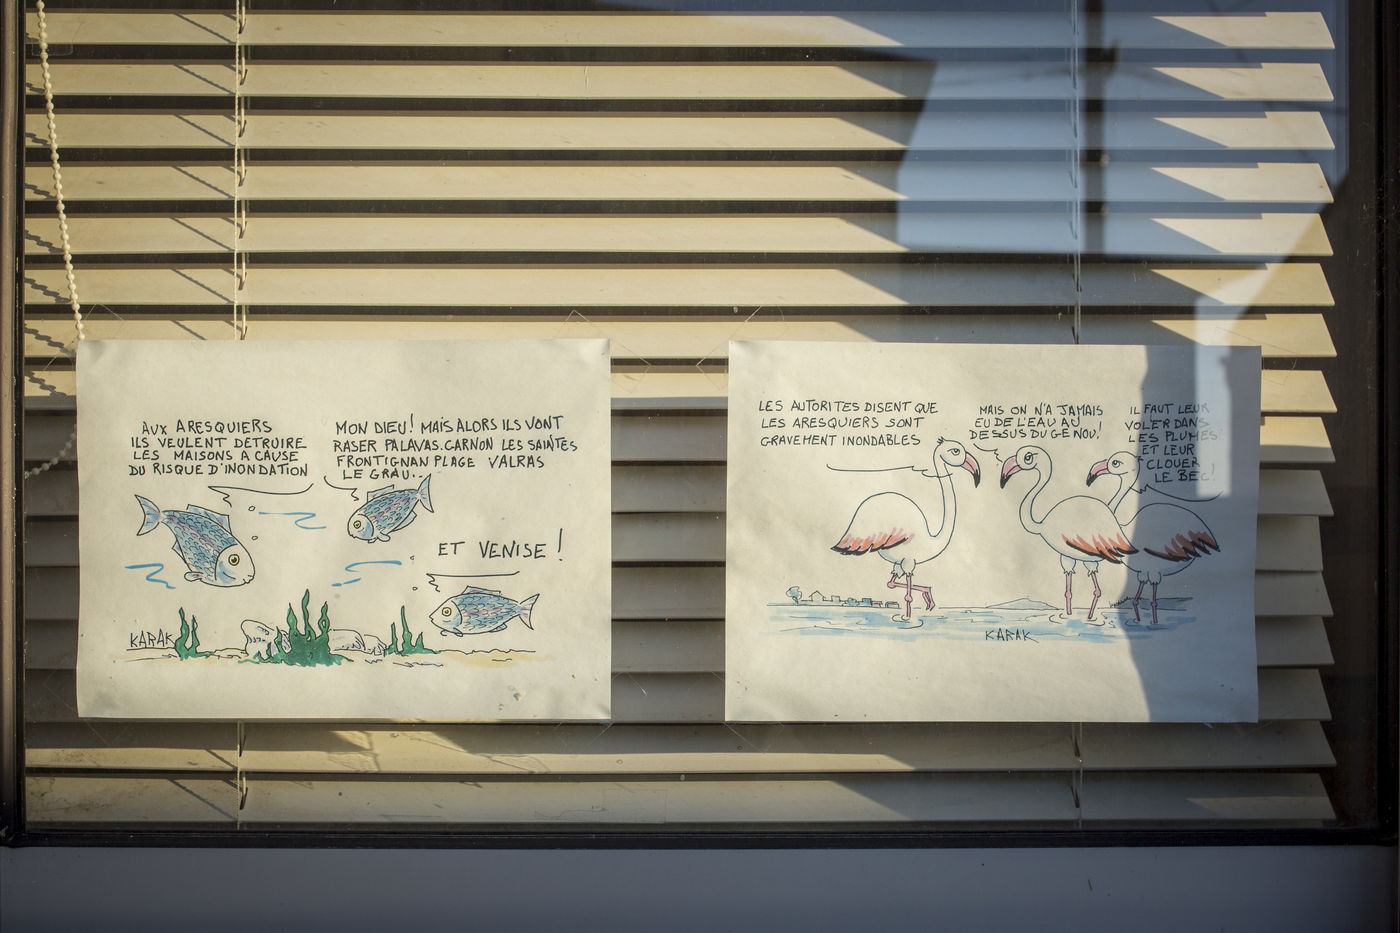 AUX ARESQUIERS
ILS VEULENT DETRUIRE
LES MAISONS A CAUSE
DU RISQUE D'INONDATION
MON DIEU! MAIS ALORS ILS VONT
RASER PALAVAS.CARNON LES SAINTES
FRONTIGNAN PLAGE VALRAS
LE GRAU..
ET VENISE!
KARAK
LES AUTORITES DISENT QUE
LES ARESQUIERS SONT
GRAVEMENT INONDABLES
MAIS ON N'A JAMAIS
EU DE L'EAU AU
DESSUS DU GENOU!
IL FAUT LEUR
VOLER DANS
LES PLUMES
ET LEUR
CLOUER
LE BEC!
KARAK